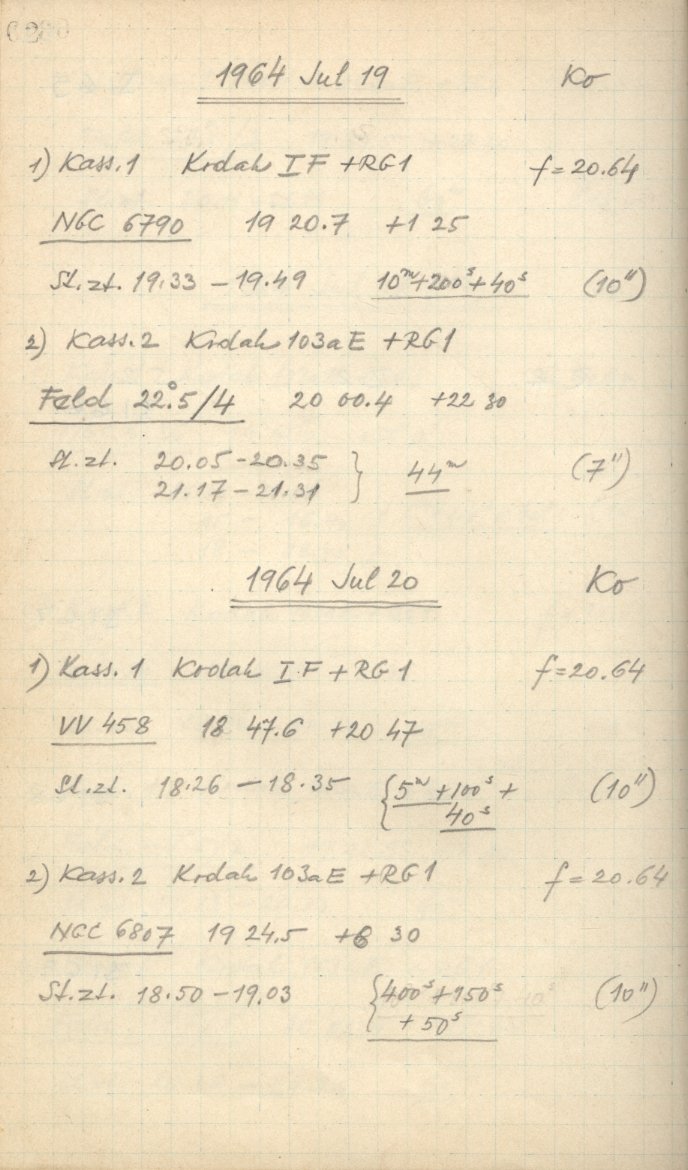 1964 Jul 19 Ko
1) Kass. 1 Kodak I F + RG1 f = 20.64
NGC 6790 19 20.7 +1 25
St. zt. 19.33 – 19.49 10ᵐ+200ˢ+40ˢ (10")
2) Kass. 2 Kodak 103aE + RG1
Feld 22°.5/4 20 00.4 +22 30
St. zt. 20.05 – 20.35 } 44ᵐ (7")
21.17 – 21.31
1964 Jul 20 Ko
1) Kass. 1 Kodak I F + RG1 f = 20.64
VV 458 18 47.6 +20 47
St. zt. 18.26 – 18.35 {5ᵐ+100ˢ+ (10")
40ˢ
2) Kass. 2 Kodak 103aE + RG1 f = 20.64
NGC 6807 19 24.5 +6 30
St. zt. 18.50 – 19.03 {400ˢ+150ˢ (10")
+ 50ˢ